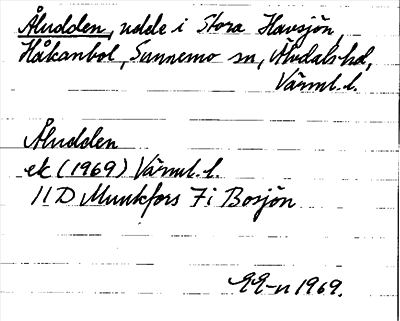 Åludden, udde i Stora Havsjön,
Håkanbol, Sunnemo sn, Älvdals hd,
Värml. l.
Åludden
ek (1969) Värml. l.
11D Munkfors 7i Bosjön
1969.